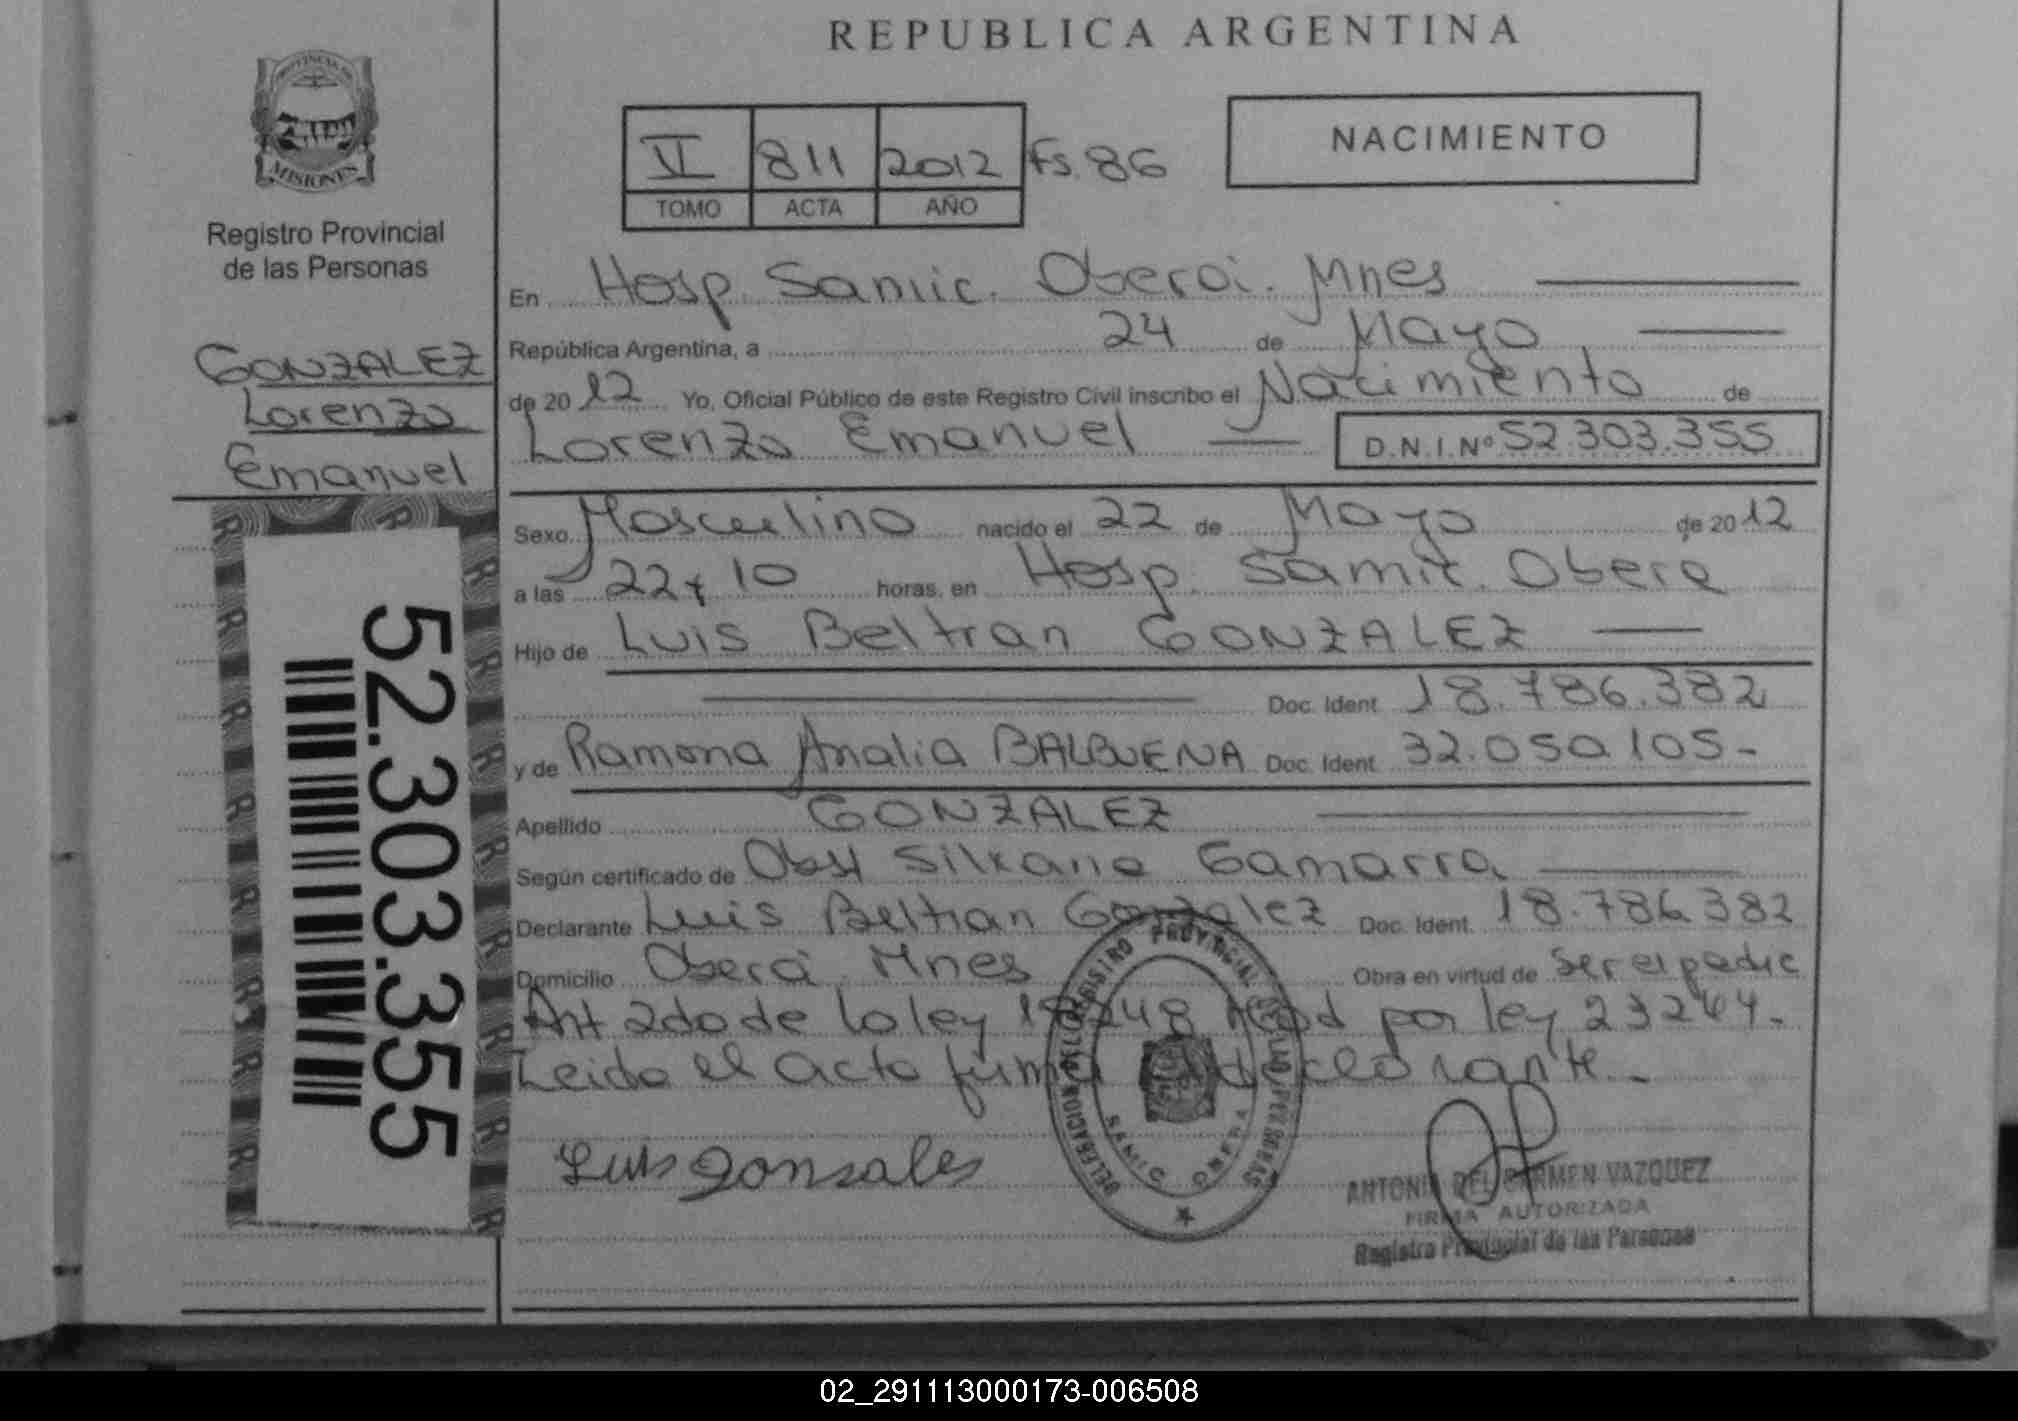 REPUBLICA ARGENTINA
PROVINCIA DE
MISIONES
Registro Provincial
de las Personas
VI 811 2012 Fs. 86
TOMO ACTA AÑO
NACIMIENTO
GONZALEZ
Lorenzo
Emanuel
52.303.355
En Hosp. Samic. Oberá. Mnes
República Argentina, a 24 de Mayo
de 2012 Yo, Oficial Público de este Registro Civil inscribo el Nacimiento de
Lorenzo Emanuel D.N.I.Nº 52.303.355
Sexo Masculino nacido el 22 de Mayo de 2012
a las 22 y 10 horas, en Hosp. Samic. Oberá
Hijo de Luis Beltran GONZALEZ
Doc. Ident. 18.786.382
y de Ramona Analia BALBUENA Doc. Ident. 32.050.105-
Apellido GONZALEZ
Según certificado de Obst Gamarra
Declarante Luis Beltran Gonzalez Doc. Ident. 18.786.382
Domicilio Oberá Mnes Obra en virtud de
Art 2do de la ley por ley 23264.-
Leido el acta firma declarante.-
Luis Gonsales
DELEGACION DEL REGISTRO PROVINCIAL DE LAS PERSONAS
SAMIC OBERA
DEL CARMEN VAZQUEZ
FIRMA AUTORIZADA
Registro Provincial de las Personas
02_291113000173-006508